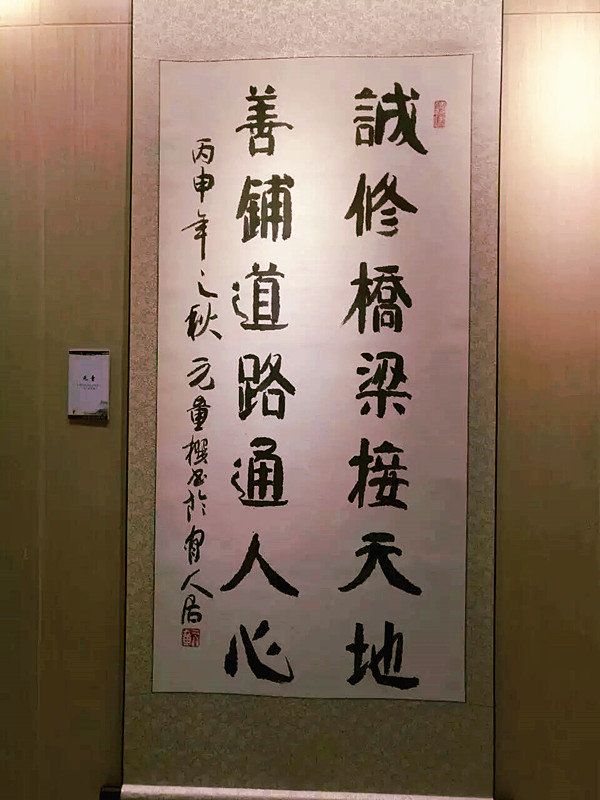 誠修橋梁接天地
善鋪道路通人心
丙申年之秋元童撰書於自人居
元童